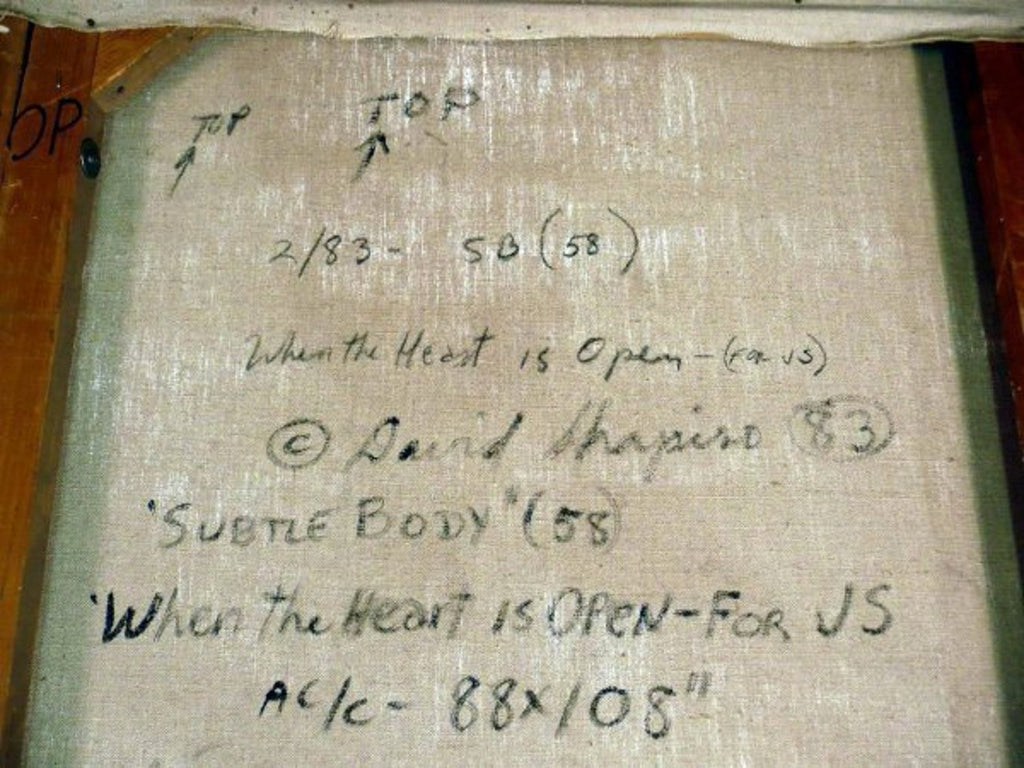 TOP TOP
OP
2/83 - SB (58)
When the Heart is Open - (FOR JS)
© David Shapiro 83
'SUBTLE BODY" (58)
'When the Heart is OPEN - FOR JS
AC/C - 88x108"